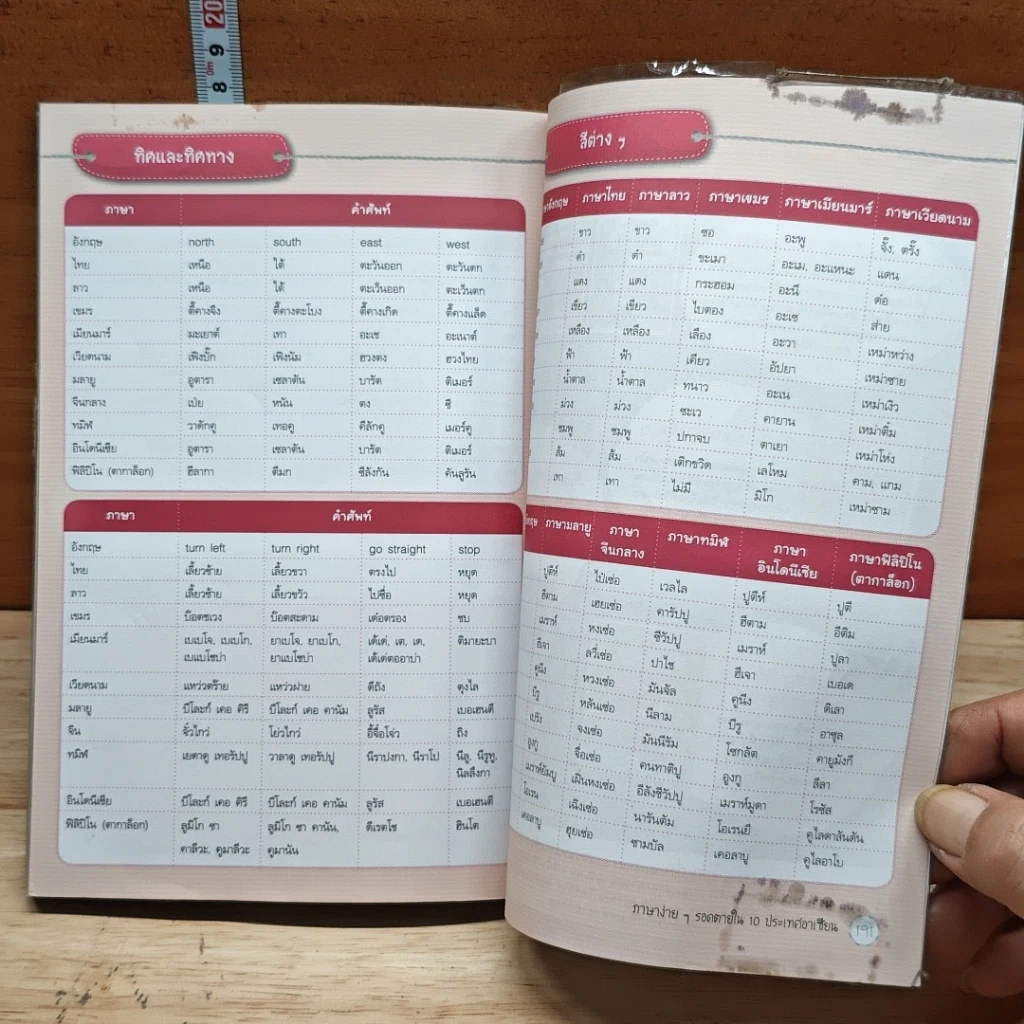 20
9
8
ทิศและทิศทาง
ภาษา คำศัพท์
อังกฤษ north south east west
ไทย เหนือ ใต้ ตะวันออก ตะวันตก
ลาว เหนือ ใต้ ตะเว็นออก ตะเว็นตก
เขมร ตี๊คางจึง ตี๊คางตะโบง ตี๊คางเกิด ตี๊คางแล็ด
เมียนมาร์ มะเยาต์ เทา อะเช อะเนาต์
เวียดนาม เฟิงบั๊ก เฟิงนัม ฮวงตง ฮวงไทย
มลายู อูตารา เซลาตัน บารัต ติเมอร์
จีนกลาง เป่ย หนัน ตง ซี
ทมิฬ วาดักคู เทอคู คีลักคู เมอร์คู
อินโดนีเซีย อูตารา เซลาตัน บารัต ติเมอร์
ฟิลิปิโน (ตากาล็อก) ฮีลากา ติมก ซีลังกัน คันลูรัน
ภาษา คำศัพท์
อังกฤษ turn left turn right go straight stop
ไทย เลี้ยวซ้าย เลี้ยวขวา ตรงไป หยุด
ลาว เลี้ยวซ้าย เลี้ยวขวัว ไปซื่อ หยุด
เขมร บ๊อตชเวง บ๊อตสะดาม เด๋อตรอง ชบ
เมียนมาร์ เบเบโจ, เบเบโก, ยาเบโจ, ยาเบโก, เต้เต่, เต, เต, ติมายะบา
เบแบโซบ่า ยาแบโซบ่า เต้เต่ตออาบ่า
เวียดนาม แหว่วตร๊าย แหว่วฝาย ดีถัง ดุงไล
มลายู บีโละก์ เคอ คิรี บีโละก์ เคอ คานัม ลูรัส เบอเฮนตี
จีน จั่วไกว่ โย่วไกว่ อี้จื๋อโจ่ว ถิง
ทมิฬ เยดาดู เทอรัปปู วาลาดู เทอรัปปู นีราปงกา, นีราโป นีลู, นีรูทู,
นิลลึงกา
อินโดนีเซีย บีโละก์ เคอ คิรี บีโละก์ เคอ คานัม ลูรัส เบอเฮนตี
ฟิลิปิโน (ตากาล็อก) ลูมิโก ซา ลูมิโก ซา คานัน, ดีเรตโซ ฮินโต
คาลีวะ, คูมาลีวะ คูมานัน
สีต่าง ๆ
ภาษาไทย ภาษาลาว ภาษาเขมร ภาษาเมียนมาร์ ภาษาเวียดนาม
ขาว ขาว ซอ อะพู จั๊ง, ตรั๊ง
ดำ ดำ ขะเมา อะเม, อะแหนะ แดน
แดง แดง กระฮอม อะนี ด๋อ
เขียว เขียว ไบตอง อะเซ ส่าย
เหลือง เหลือง เลือง อะวา เหม่าหว่าง
ฟ้า ฟ้า เคียว อัปยา เหม่าซาย
น้ำตาล น้ำตาล ทนาว อะเน เหม่าเงิว
ม่วง ม่วง ซะเว คายาน เหม่าติ๋ม
ชมพู ชมพู ปกาจบ ตาเยา เหม่าโห่ง
ส้ม ส้ม เติกขวิด เลโหม คาม, แกม
เทา เทา ไม่มี มิโก เหม่าซาม
ภาษามลายู ภาษา ภาษาทมิฬ ภาษา ภาษาฟิลิปิโน
จีนกลาง อินโดนีเซีย (ตากาล็อก)
ปูตีห์ ไป๋เซ่อ เวลไล ปูตีห์ ปูตี
ฮีตาม เฮยเซ่อ คารัปปู ฮีตาม อีติม
เมราห์ หงเซ่อ ซีวัปปู เมราห์ ปูลา
ฮีเจา ลวี่เซ่อ ปาไช ฮีเจา เบอเด
คูนิง หวงเซ่อ มันจัล คูนึง ดิเลา
บีรู หลันเซ่อ นีลาม บีรู อาซุล
เปรัง จงเซ่อ มันนีรัม โชกลัต คายูมังกี
อูงู จื่อเซ่อ คนทาติปู อูงู ลีลา
เมราห์ยัมบู เฝิ่นหงเซ่อ อีลังซีวัปปู เมราห์มูดา โรซัส
โอเรน เฉิงเซ่อ นารันตัม โอเรนยี คูไลดาลันดัน
เคอลาบู ฮุยเซ่อ ซามบัล เคอลาบู คูไลอาโบ
ภาษาง่าย ๆ รอดตายใน 10 ประเทศอาเซียน 191